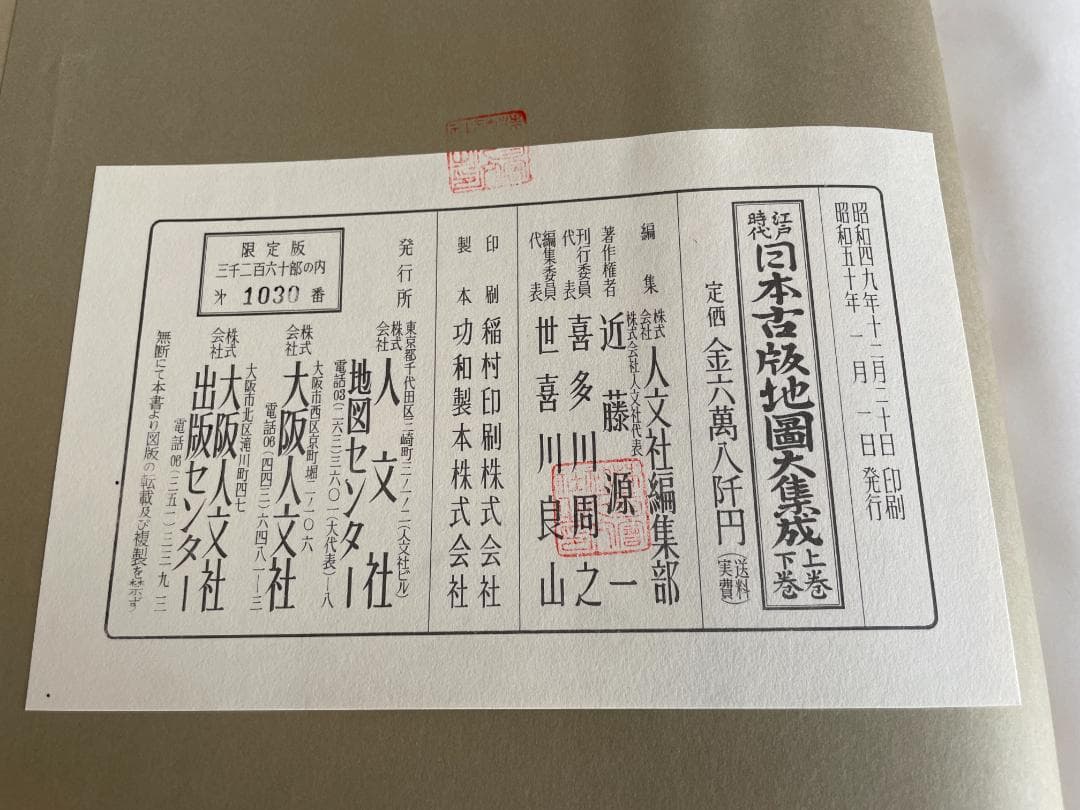 昭和四九年十二月二十日 印刷
昭和五十年 一月 一日 発行
江戸時代 日本古版地圖大集成 上巻 下巻
定価 金六萬八仟円 (送料実費)
編集 株式会社 人文社編集部
著作権者 株式会社人文社代表 近藤源一
刊行委員代表 喜多川周之
編集委員代表 世喜川良山
印刷 稲村印刷株式会社
製本 功和製本株式会社
発行所 株式会社 人文社
東京都千代田区三崎町三ノ一ノ二(人文社ビル)
地図センター
電話03(二六三)三六〇一(大代表)一八
大阪市西区京町堀二ノ一〇六
株式会社 大阪人文社
電話06(四四三)六四八一ー三
大阪市北区滝川町四七
株式会社 大阪人文社出版センター
電話06(三五一)三三九二三
無断にて本書より図版の転載及び複製を禁ず
限定版
三千二百六十部の内
㐧 1030 番